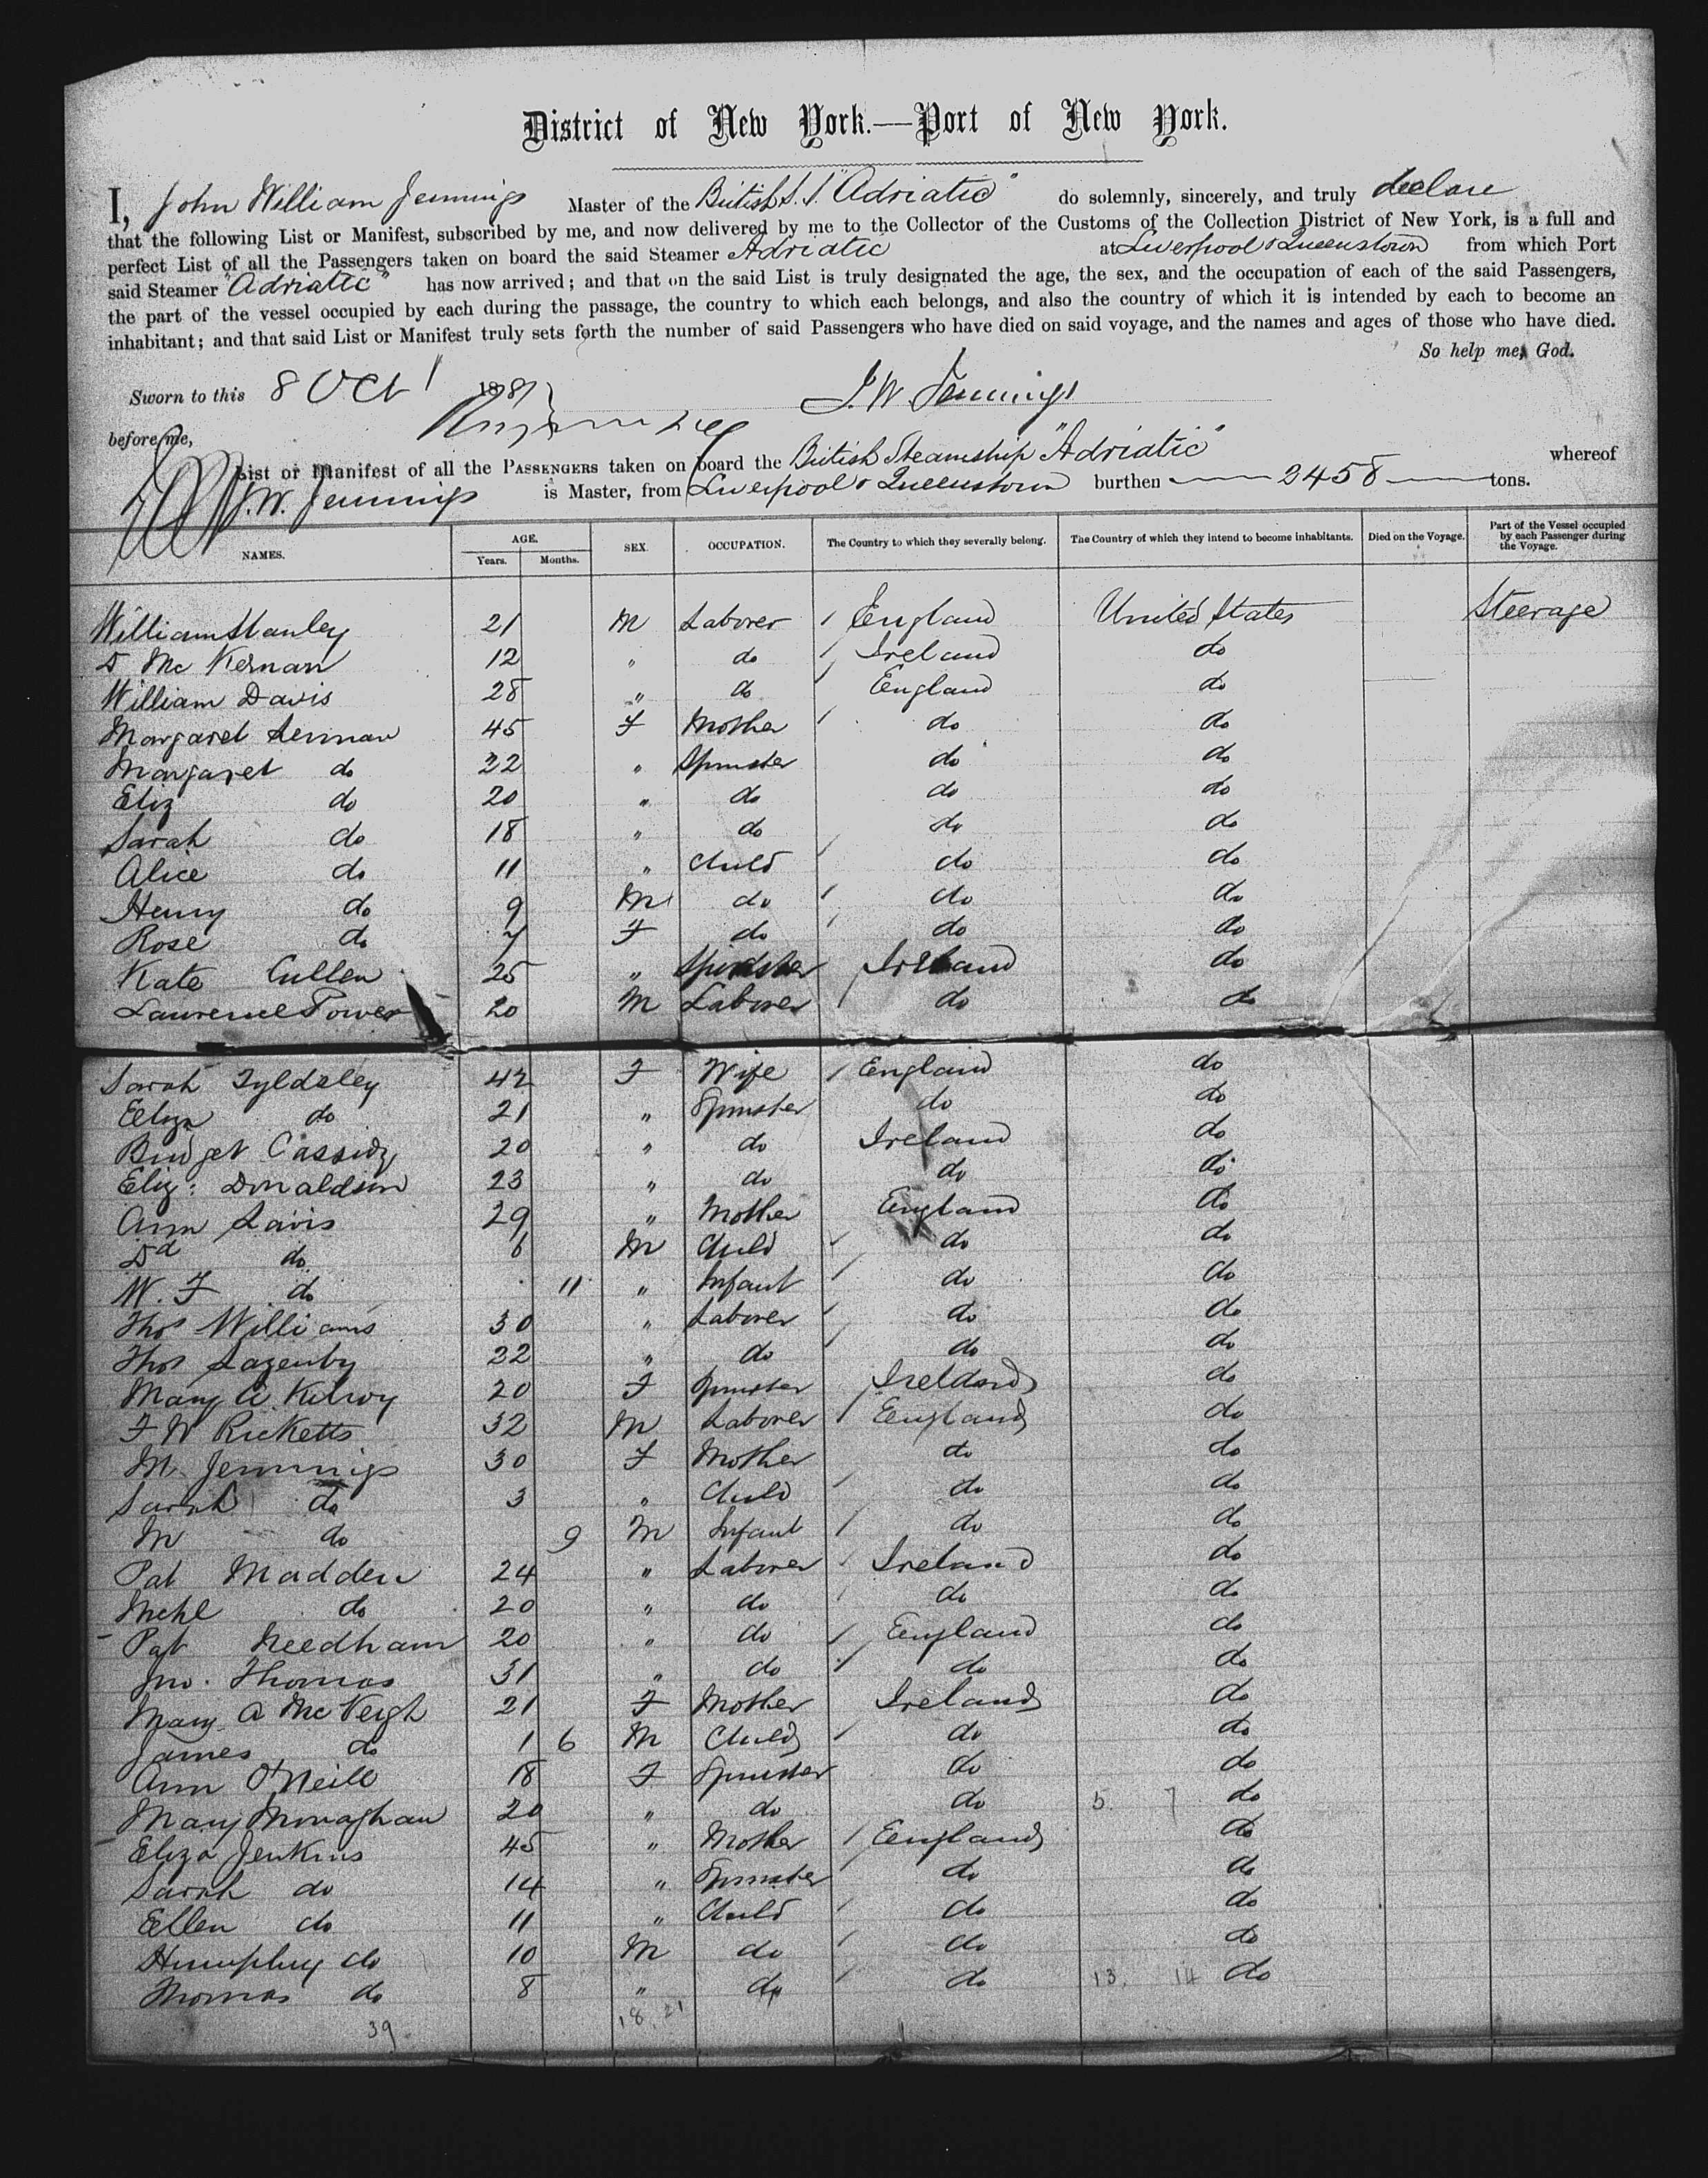 District of New York.—Port of New York.
I, John William Jennings Master of the British S.S. "Adriatic" do solemnly, sincerely, and truly declare
that the following List or Manifest, subscribed by me, and now delivered by me to the Collector of the Customs of the Collection District of New York, is a full and
perfect List of all the Passengers taken on board the said Steamer Adriatic at Liverpool & Queenstown from which Port
said Steamer "Adriatic" has now arrived; and that on the said List is truly designated the age, the sex, and the occupation of each of the said Passengers,
the part of the vessel occupied by each during the passage, the country to which each belongs, and also the country of which it is intended by each to become an
inhabitant; and that said List or Manifest truly sets forth the number of said Passengers who have died on said voyage, and the names and ages of those who have died.
So help me, God.
Sworn to this 8 Oct 1881 J. W. Jennings
before me,
List or Manifest of all the PASSENGERS taken on board the British Steamship "Adriatic" whereof
J. W. Jennings is Master, from Liverpool & Queenstown burthen 2458 tons.
NAMES. AGE. Years. Months. SEX. OCCUPATION. The Country to which they severally belong. The Country of which they intend to become inhabitants. Died on the Voyage. Part of the Vessel occupied by each Passenger during the Voyage.
William Stanley 21 M Laborer England United States Steerage
D McKernan 12 " do Ireland do
William Davis 28 " do England do
Margaret Lennan 45 F Mother do do
Margaret do 22 " Spinster do do
Eliz do 20 " do do do
Sarah do 18 " do do do
Alice do 11 " Child do do
Henry do 9 M do do do
Rose do 7 F do do do
Kate Cullen 25 " Spinster Ireland do
Laurence Power 20 M Laborer do do
Sarah Tyldsley 42 F Wife England do
Eliza do 21 " Spinster do do
Bridget Cassidy 20 " do Ireland do
Eliz: Donaldson 23 " do do do
Ann Davis 29 " Mother England do
Dd do 6 M Child do do
W. F do 11 " Infant do do
Thos Williams 30 " Laborer do do
Thos Lazenby 22 " do do do
Mary A. Kilroy 20 F Spinster Ireland do
F W Ricketts 32 M Laborer England do
M. Jennings 30 F Mother do do
Sarah do 3 " Child do do
M do 9 M Infant do do
Pat Madden 24 " Laborer Ireland do
Michl do 20 " do do do
Pat Needham 20 " do England do
Jno. Thomas 31 " do do do
Mary A McVeigh 21 F Mother Ireland do
James do 1 6 M Child do do
Ann O'Neill 18 F Spinster do do
Mary Monaghan 20 " do do 5 7 do
Eliza Jenkins 45 " Mother England do
Sarah do 14 " Spinster do do
Ellen do 11 " Child do do
Humphry do 10 M do do do
Thomas do 8 " do do 13. 14 do
39 18. 21